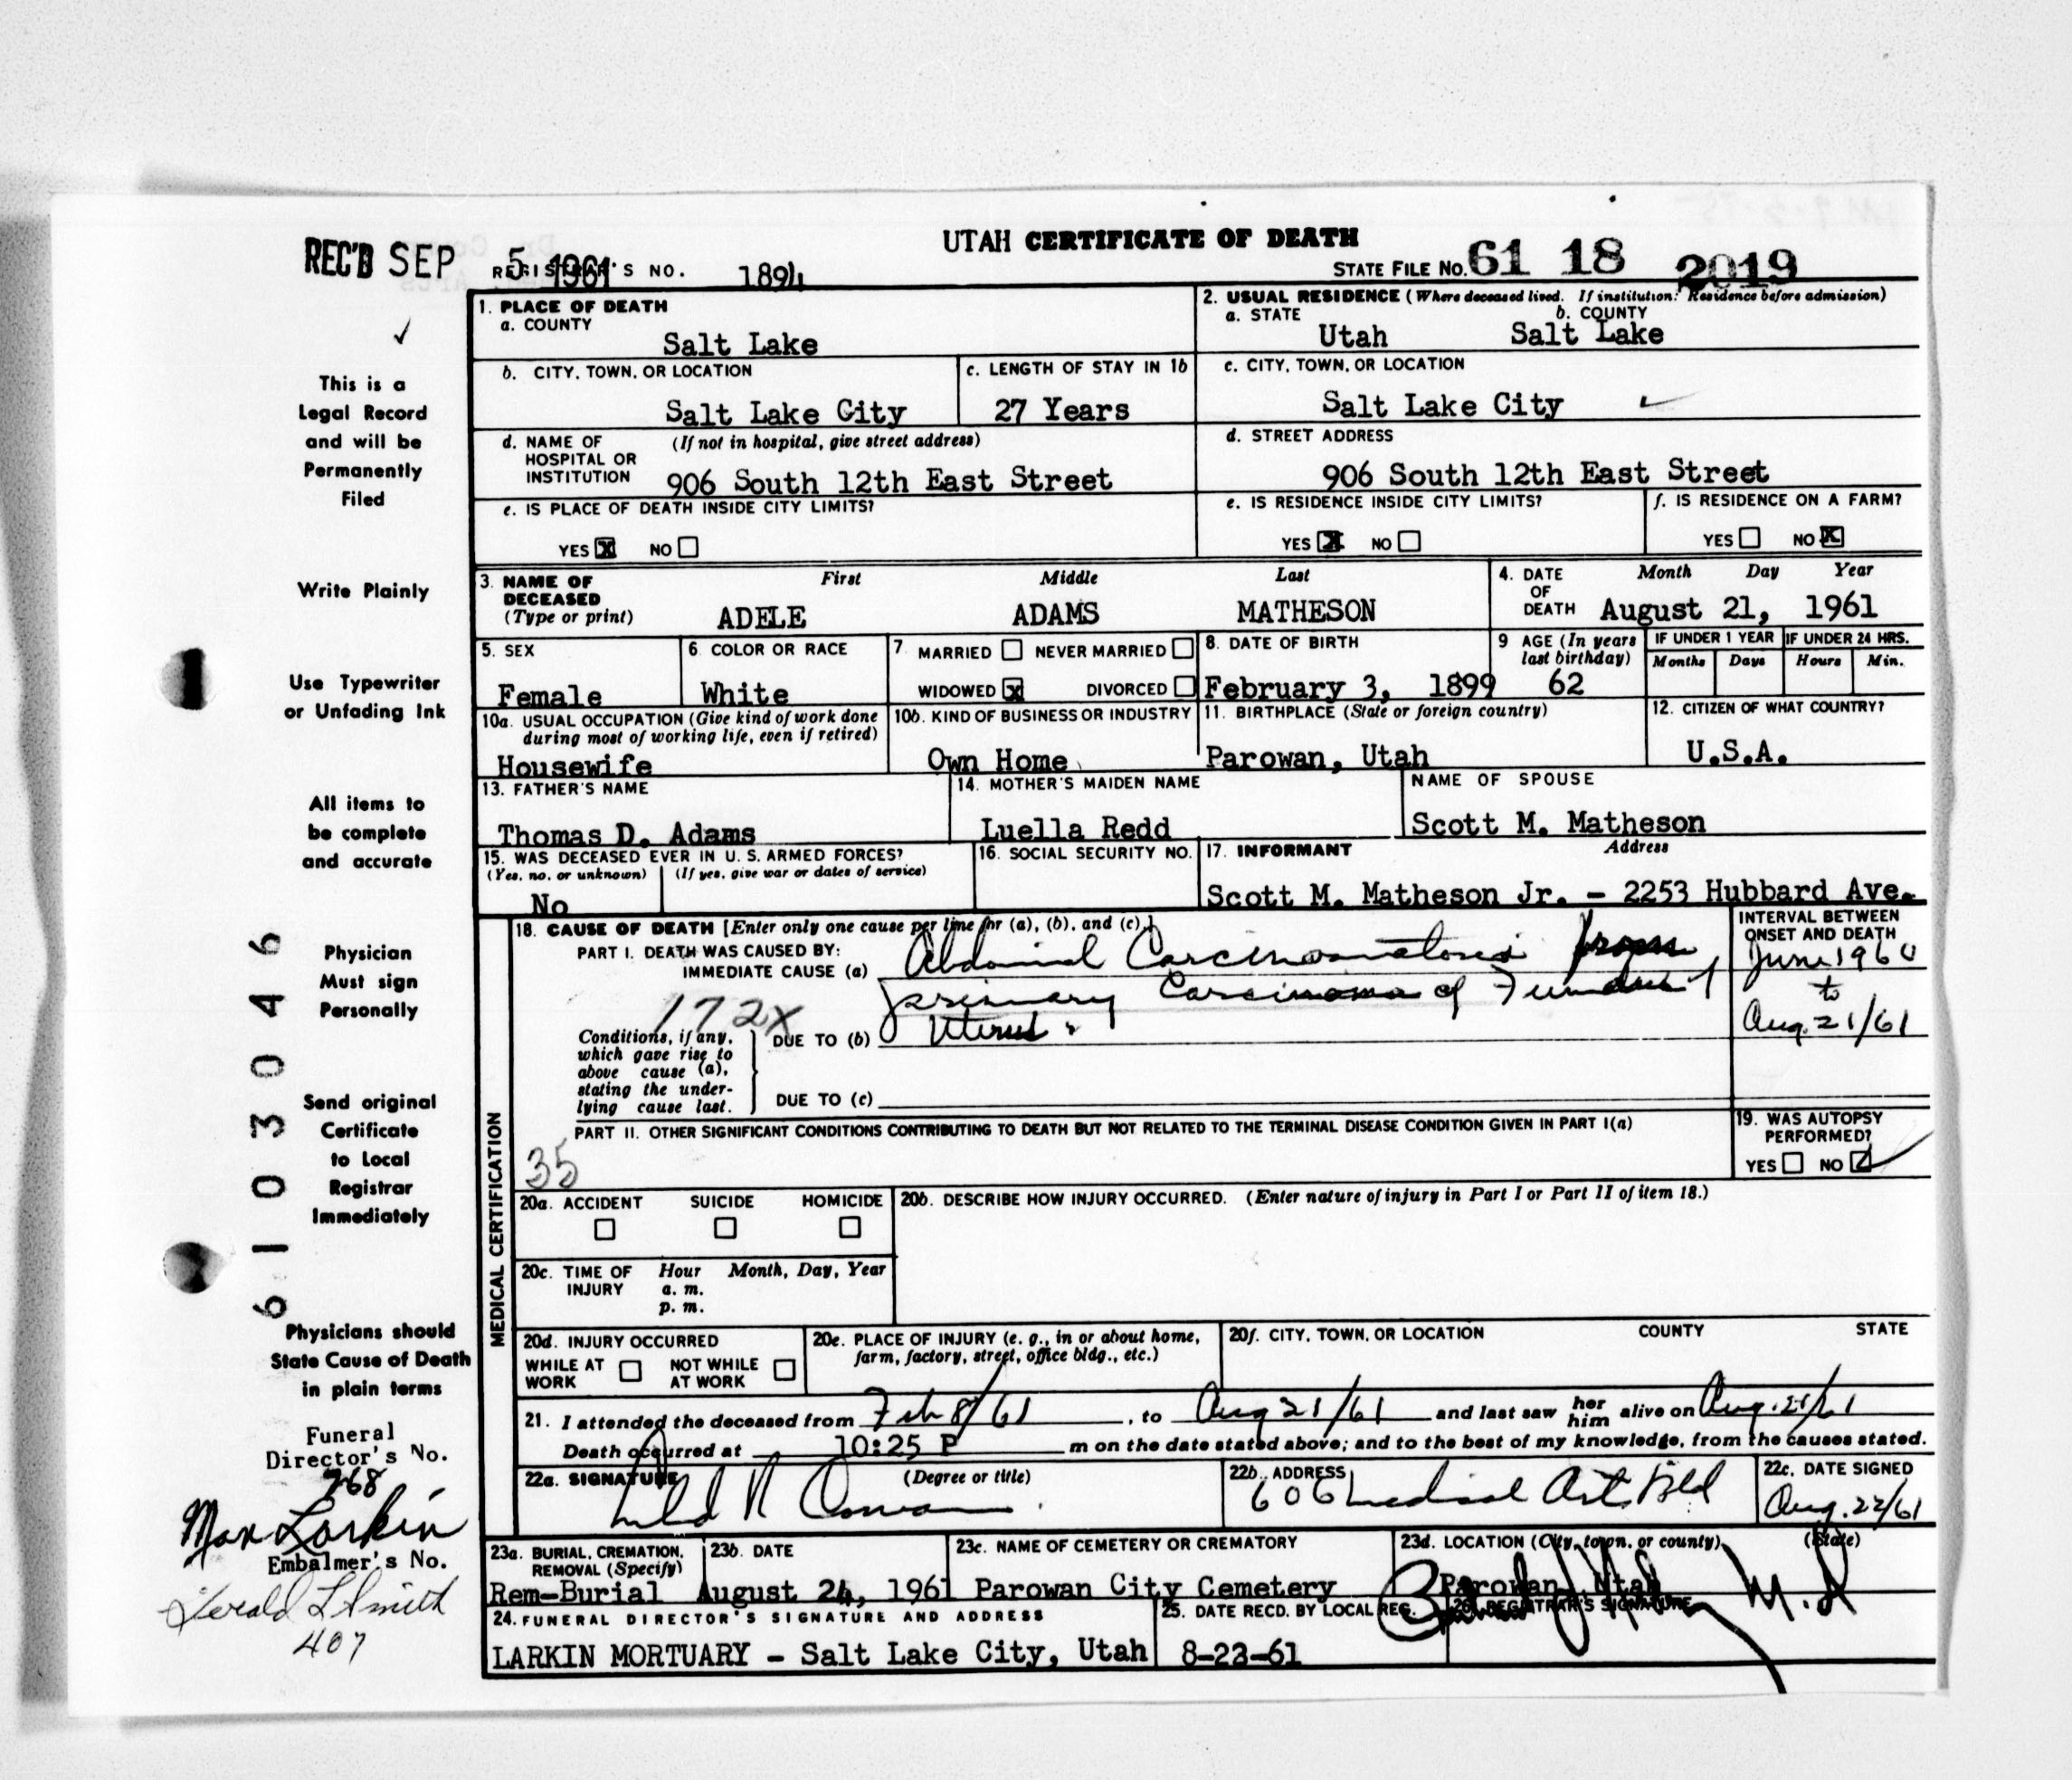 UTAH CERTIFICATE OF DEATH
REC'D SEP 5 1961
REGISTRAR'S NO. 1894
STATE FILE NO. 61 18 2019
1. PLACE OF DEATH
a. COUNTY
Salt Lake
2. USUAL RESIDENCE (Where deceased lived. If institution: Residence before admission)
a. STATE b. COUNTY
Utah Salt Lake
b. CITY, TOWN, OR LOCATION
Salt Lake City
c. LENGTH OF STAY IN 1b
27 Years
c. CITY, TOWN, OR LOCATION
Salt Lake City
d. NAME OF HOSPITAL OR INSTITUTION (If not in hospital, give street address)
906 South 12th East Street
d. STREET ADDRESS
906 South 12th East Street
e. IS PLACE OF DEATH INSIDE CITY LIMITS?
YES X NO
e. IS RESIDENCE INSIDE CITY LIMITS?
YES X NO
f. IS RESIDENCE ON A FARM?
YES NO X
3. NAME OF DECEASED (Type or print)
First Middle Last
ADELE ADAMS MATHESON
4. DATE OF DEATH
Month Day Year
August 21, 1961
5. SEX
Female
6. COLOR OR RACE
White
7. MARRIED NEVER MARRIED
WIDOWED X DIVORCED
8. DATE OF BIRTH
February 3, 1899
9 AGE (In years last birthday)
62
IF UNDER 1 YEAR
Months Days
IF UNDER 24 HRS.
Hours Min.
10a. USUAL OCCUPATION (Give kind of work done during most of working life, even if retired)
Housewife
10b. KIND OF BUSINESS OR INDUSTRY
Own Home
11. BIRTHPLACE (State or foreign country)
Parowan, Utah
12. CITIZEN OF WHAT COUNTRY?
U.S.A.
13. FATHER'S NAME
Thomas D. Adams
14. MOTHER'S MAIDEN NAME
Luella Redd
NAME OF SPOUSE
Scott M. Matheson
15. WAS DECEASED EVER IN U. S. ARMED FORCES?
(Yes, no, or unknown) (If yes, give war or dates of service)
No
16. SOCIAL SECURITY NO.
17. INFORMANT Address
Scott M. Matheson Jr. - 2253 Hubbard Ave.
MEDICAL CERTIFICATION
18. CAUSE OF DEATH [Enter only one cause per line for (a), (b), and (c).]
PART I. DEATH WAS CAUSED BY:
IMMEDIATE CAUSE (a) Abdominal Carcinomatosis from
primary Carcinoma of Fundus of
172X
DUE TO (b) Uterus.
Conditions, if any, which gave rise to above cause (a), stating the underlying cause last.
DUE TO (c)
INTERVAL BETWEEN ONSET AND DEATH
June 1960
to
Aug. 21/61
PART II. OTHER SIGNIFICANT CONDITIONS CONTRIBUTING TO DEATH BUT NOT RELATED TO THE TERMINAL DISEASE CONDITION GIVEN IN PART I(a)
35
19. WAS AUTOPSY PERFORMED?
YES NO
20a. ACCIDENT SUICIDE HOMICIDE
20b. DESCRIBE HOW INJURY OCCURRED. (Enter nature of injury in Part I or Part II of item 18.)
20c. TIME OF INJURY Hour Month, Day, Year
a. m.
p. m.
20d. INJURY OCCURRED
WHILE AT WORK NOT WHILE AT WORK
20e. PLACE OF INJURY (e. g., in or about home, farm, factory, street, office bldg., etc.)
20f. CITY, TOWN, OR LOCATION COUNTY STATE
21. I attended the deceased from Feb 8/61, to Aug 21/61 and last saw her him alive on Aug. 21/61
Death occurred at 10:25 P m on the date stated above; and to the best of my knowledge, from the causes stated.
22a. SIGNATURE (Degree or title)
22b. ADDRESS
606 Medical Arts Bld
22c. DATE SIGNED
Aug. 22/61
23a. BURIAL, CREMATION, REMOVAL (Specify)
Rem-Burial
23b. DATE
August 24, 1961
23c. NAME OF CEMETERY OR CREMATORY
Parowan City Cemetery
23d. LOCATION (City, town, or county) (State)
Parowan, Utah
24. FUNERAL DIRECTOR'S SIGNATURE AND ADDRESS
LARKIN MORTUARY - Salt Lake City, Utah
25. DATE RECD. BY LOCAL REG.
8-23-61
26. REGISTRAR'S SIGNATURE
M.D
This is a
Legal Record
and will be
Permanently
Filed
Write Plainly
Use Typewriter
or Unfading Ink
All items to
be complete
and accurate
Physician
Must sign
Personally
Send original
Certificate
to Local
Registrar
Immediately
6103046
Physicians should
State Cause of Death
in plain terms
Funeral
Director's No.
768
Max Larkin
Embalmer's No.
Gerald L Smith
407